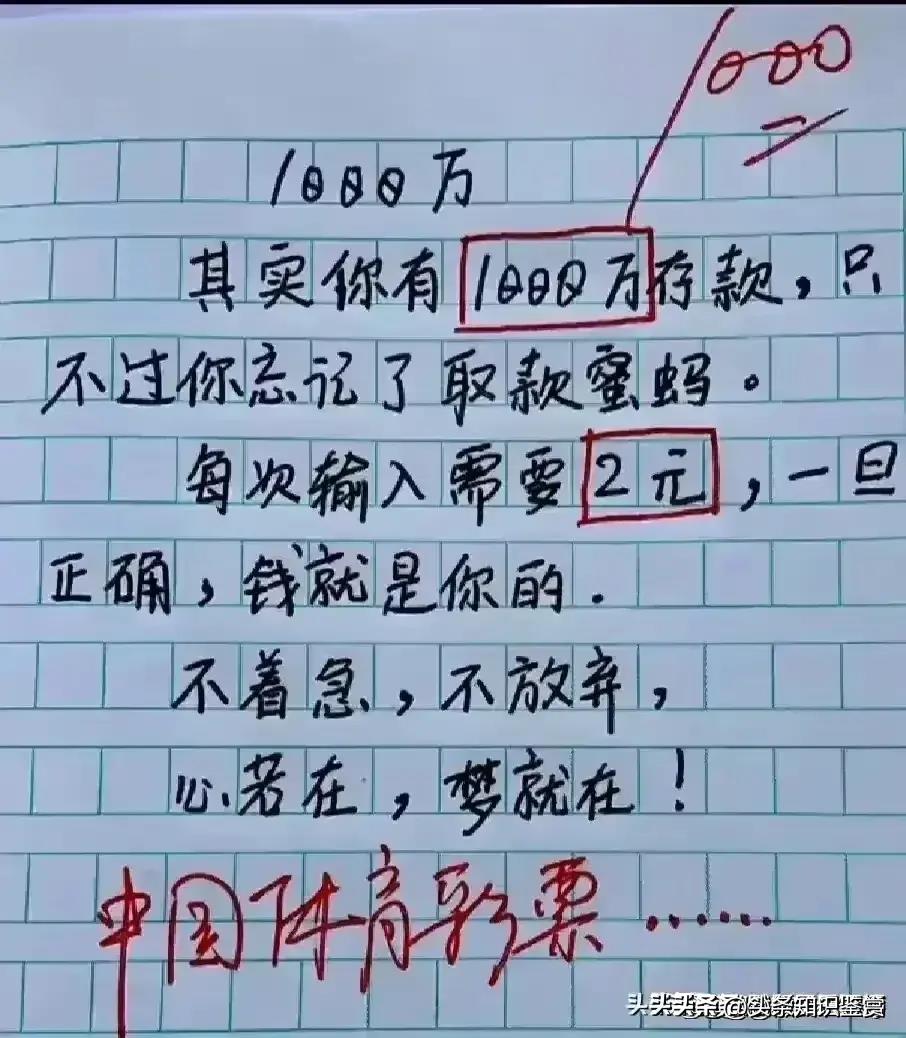 1000
1000万
其实你有1000万存款，只
不过你忘记了取款蜜蚂。
每次输入需要2元，一旦
正确，钱就是你的.
不着急，不放弃，
心若在，梦就在！
中国体育彩票……
头条@头条知识鉴赏